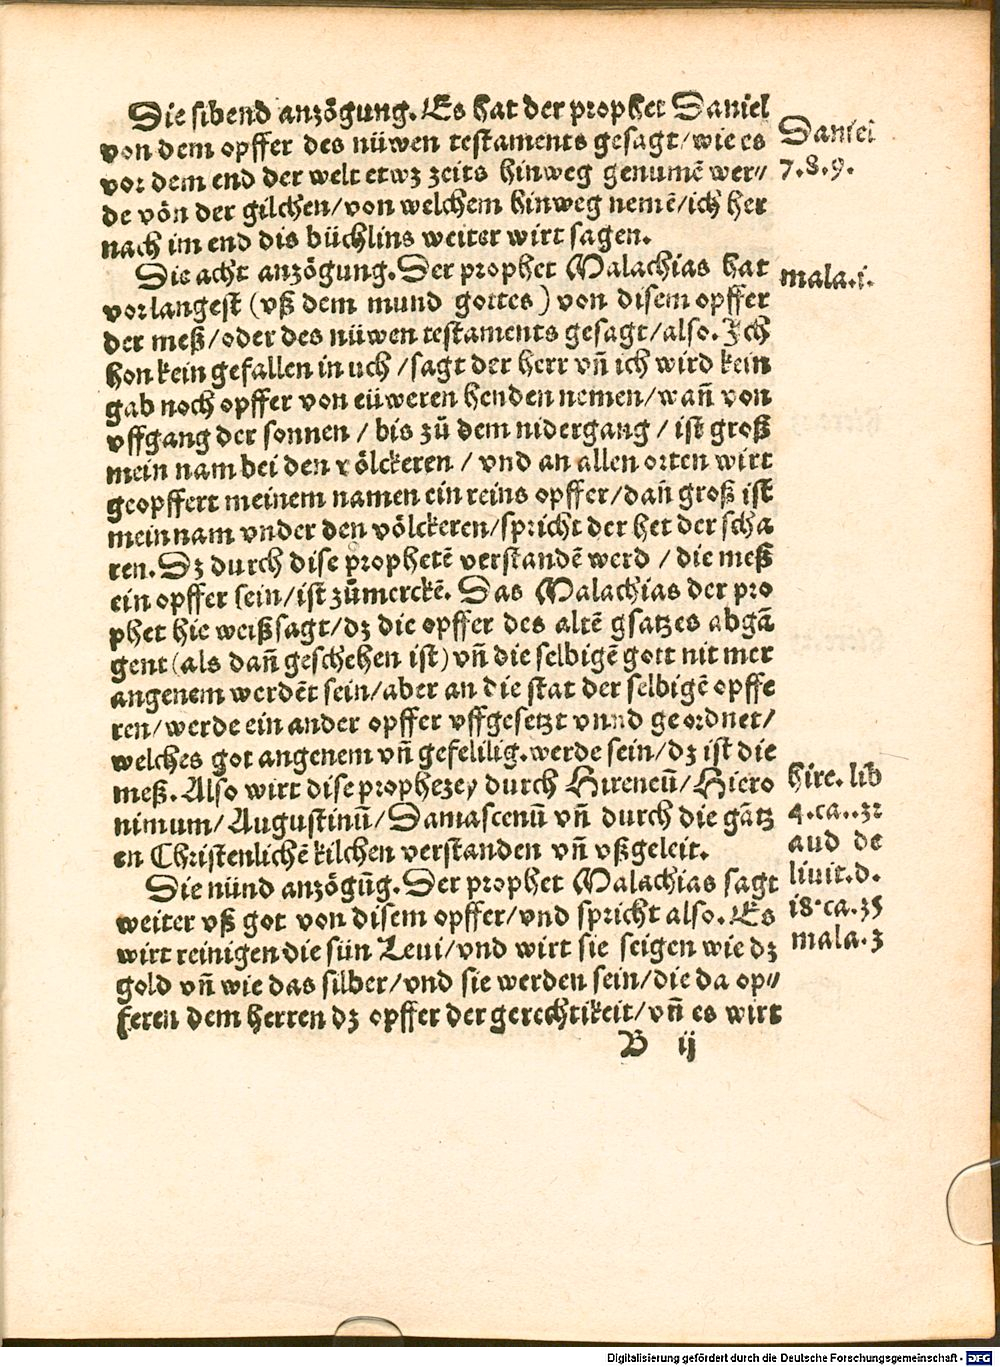 Die sibend anzögung. Es hat der prophet Daniel
von dem opffer des nüwen testaments gesagt/wie es
vor dem end der welt etwz zeits hinweg genumē wer//
de vön der gilchen/von welchem hinweg nemē/ich her
nach im end dis büchlins weiter wirt sagen.
Daniel
7.8.9.
Die acht anzögung. Der prophet Malachias hat
vorlangest (vß dem mund gottes) von disem opffer
der meß/oder des nüwen testaments gesagt/also. Ich
hon kein gefallen in uch/sagt der herr vn̄ ich wird kein
gab noch opffer von eüweren henden nemen/wan̄ von
vffgang der sonnen/bis zů dem nidergang/ist groß
mein nam bei den völckeren/vnd an allen orten wirt
geopffert meinem namen ein reins opffer/dan̄ groß ist
mein nam vnder den völckeren/spricht der het der scha
ren. Dz durch dise prophetē verstandē werd/die meß
ein opffer sein/ist zůmerckē. Das Malachias der pro
phet hie weißsagt/dz die opffer des altē gsatzes abgā
gent (als dan̄ geschehen ist) vn̄ die selbigē gott nit mer
angenem werdēt sein/aber an die stat der selbigē opffe
ren/werde ein ander opffer vffgesetzt vnnd geordnet/
welches got angenem vn̄ gefellilig.werde sein/dz ist die
meß. Also wirt dise prophezey durch Hireneū/Hiero
nimum/Augustinū/Damascenū vn̄ durch die gātz
en Christenlichē kilchen verstanden vn̄ vßgeleit.
mala.i.
hire. lib
4.ca..32
aud de
liuit.d.
18.ca.35
Die nünd anzögūg. Der prophet Malachias sagt
weiter vß got von disem opffer/vnd spricht also. Es
wirt reinigen die sün Leui/vnd wirt sie seigen wie dz
gold vn̄ wie das silber/vnd sie werden sein/die da op//
feren dem herren dz opffer der gerechtikeit/vn̄ es wirt
mala.3
B ij
Digitalisierung gefördert durch die Deutsche Forschungsgemeinschaft - DFG